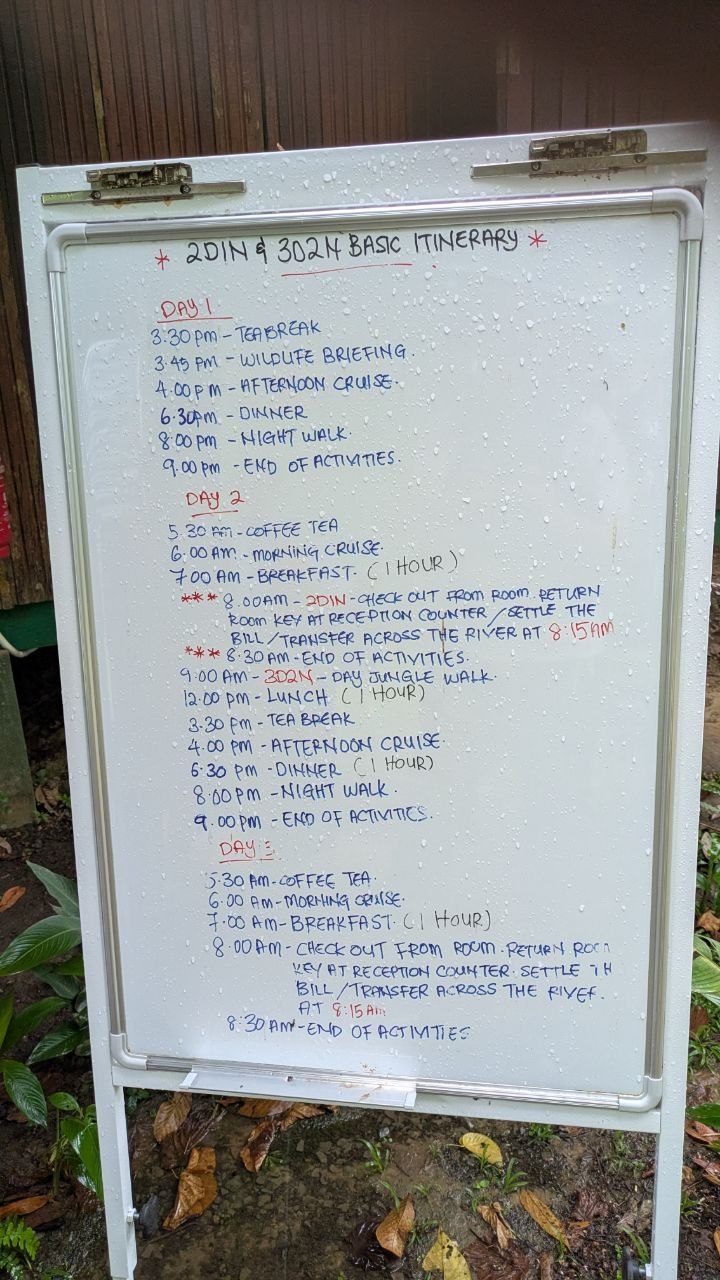 * 2D1N & 3D2N BASIC ITINERARY *
DAY 1
3:30 PM - TEA BREAK
3.45 PM - WILDLIFE BRIEFING.
4.00 PM - AFTERNOON CRUISE.
6.30PM - DINNER
8:00 PM - NIGHT WALK.
9.00 PM - END OF ACTIVITIES.
DAY 2
5.30 AM - COFFEE TEA
6.00 AM. - MORNING CRUISE.
7.00 AM - BREAKFAST. (1 HOUR)
*** 8.00AM - 2D1N - CHECK OUT FROM ROOM. RETURN
ROOM KEY AT RECEPTION COUNTER / SETTLE THE
BILL / TRANSFER ACROSS THE RIVER AT 8:15AM
*** 8.30 AM - END OF ACTIVITIES.
9.00 AM - 3D2N - DAY JUNGLE WALK.
12.00 PM - LUNCH (1 HOUR)
3.30 PM - TEA BREAK
4.00 PM - AFTERNOON CRUISE.
6.30 PM - DINNER (1 HOUR)
8.00 PM - NIGHT WALK.
9.00 PM - END OF ACTIVITIES.
DAY 3
5.30 AM - COFFEE TEA.
6.00 AM - MORNING CRUISE.
7.00 AM - BREAKFAST. (1 HOUR)
8.00 AM - CHECK OUT FROM ROOM. RETURN ROOM
KEY AT RECEPTION COUNTER. SETTLE TH
BILL / TRANSFER ACROSS THE RIVER.
AT 8:15AM
8:30 AM - END OF ACTIVITIES